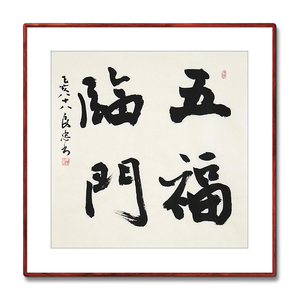 五福
臨門
乙亥八十八良忠书